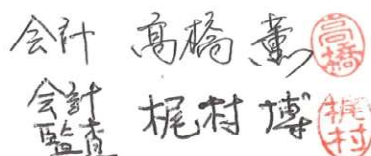 会計 高橋 薫 高橋
会計
監査 梶村 博 梶村